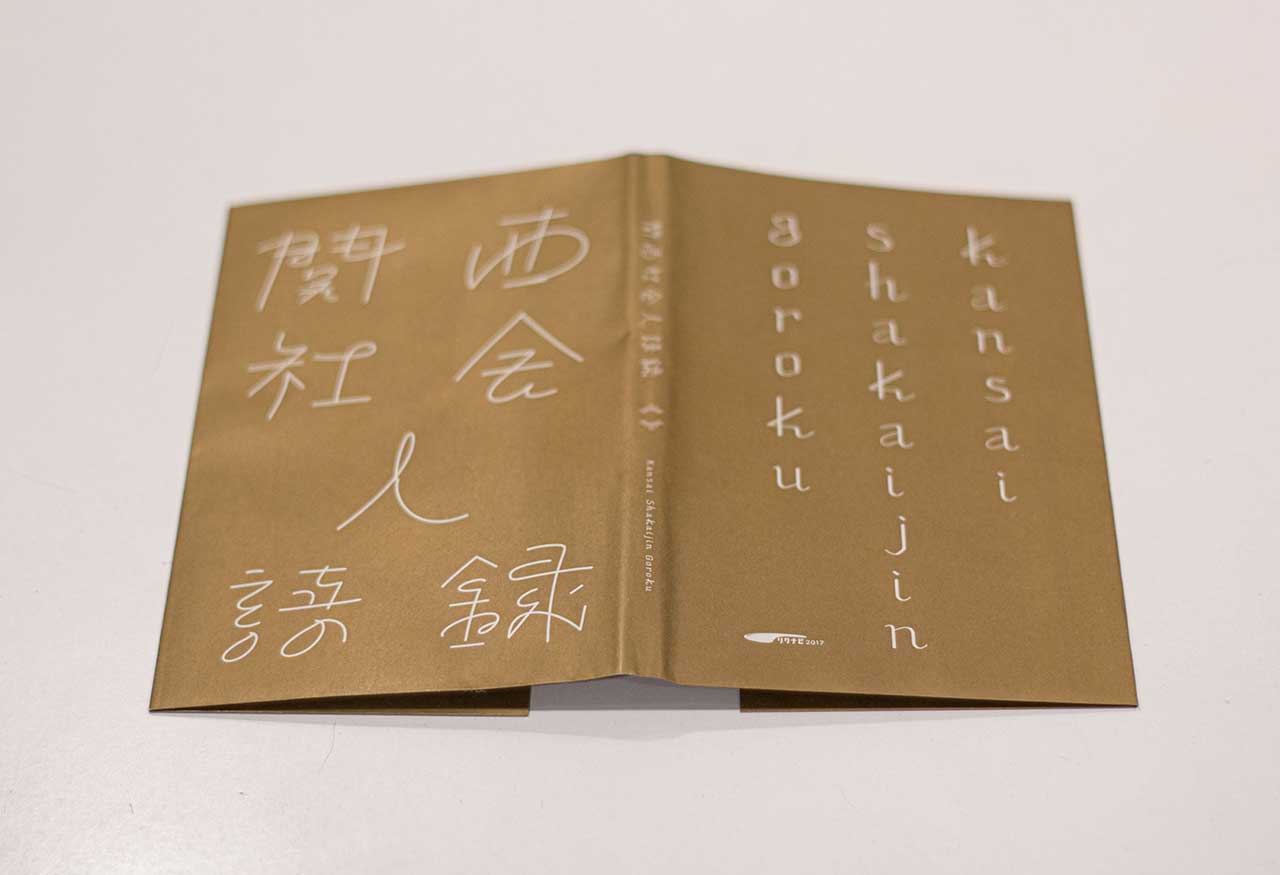 関西
社会
人
語録
関西社会人語録
Kansai Shakaijin Goroku
kansai
shakaijin
goroku
リクナビ2017